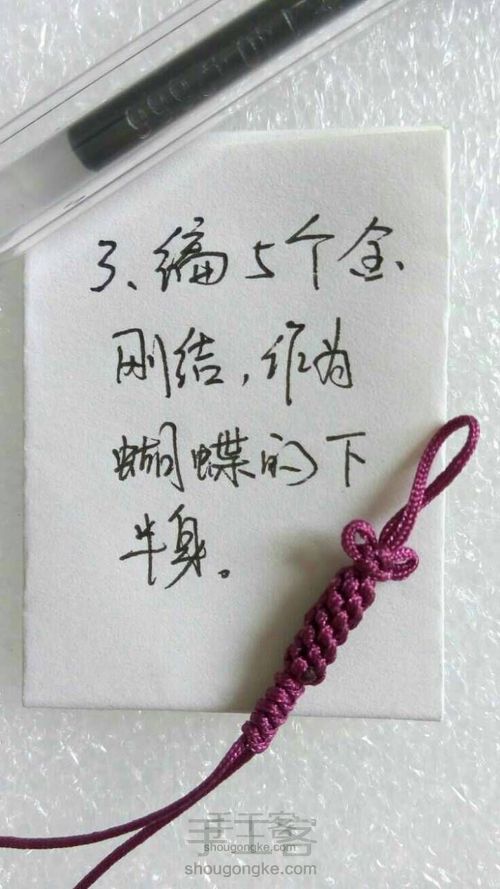 3、编5个金
刚结,作为
蝴蝶的下
半身。
手工客
shougongke.com
shougongke.com